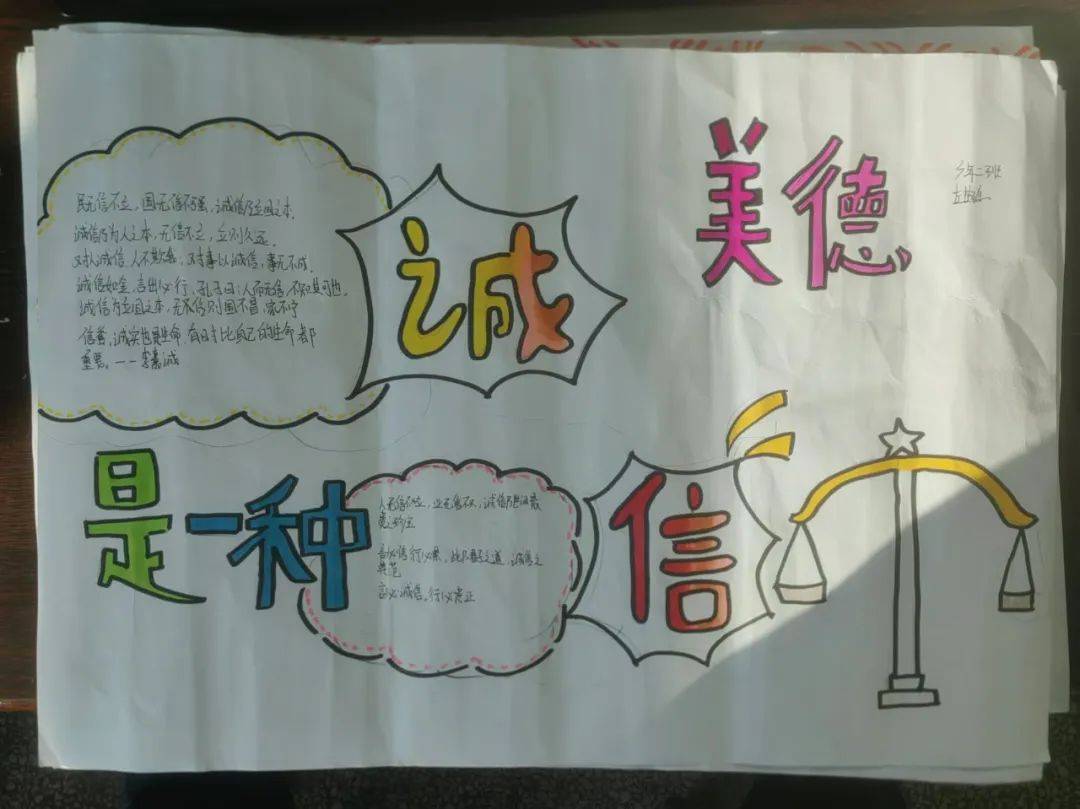 诚
美德
民无信不立，国无信不强，诚信乃立国之本，
诚信乃为人之本，无信不立，立则久远．
对人诚信，人不欺我，对事以诚信，事无不成．
诚信如金，言出必行，孔子曰：人而无信，不知其可也．
诚信为立国之本，无信则国不昌，家不宁
信誉，诚实也是生命，有时比自己的生命都
重要。——李嘉诚
是一种
人无信不立，业无信不兴，诚信乃
言必信行必果，诚信之
典范
言必诚信，行必忠正
信